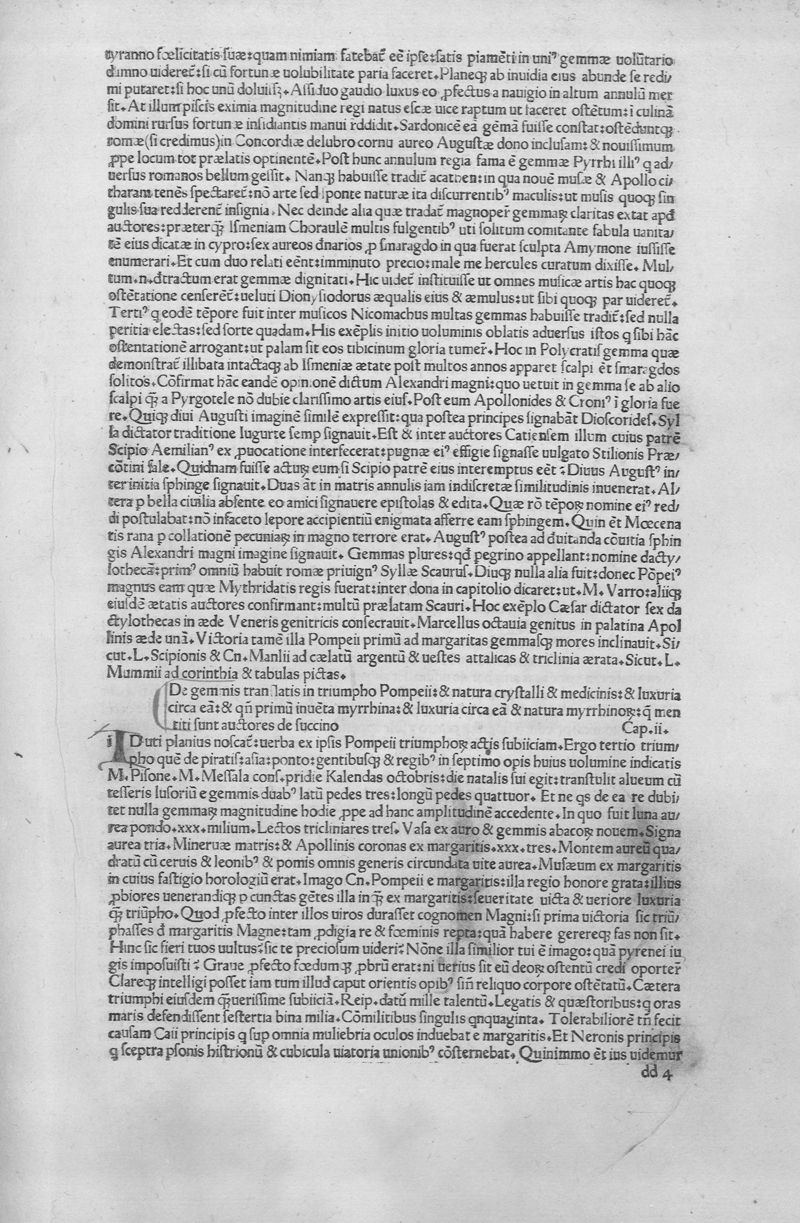 tyranno fœlicitatis suæ:quam nimiam fateba&#x0303;t eẽ ipse:satis piamẽti in uniꝰ gemmæ uolũtario
dãmno uidere&#x0303;t:si cũ fortunæ uolubilitate paria faceret.Planeqꝫ ab inuidia eius abunde se redi/
mi putaret:si hoc unũ doluiss&#x0303;.Assiduo gaudio luxus eo ꝓfectus a nauigio in altum annulũ mer
sit.At illum piscis eximia magnitudine regi natus escæ uice raptum ut faceret ostẽtum:ĩ culinã
domini rursus fortunæ insidiantis manui r&#x0303;ddidit.Sardonicẽ eã gẽmã fuisse constat:ostẽduntqꝫ
romæ(si credimus)in Concordiæ delubro cornu aureo Augustæ dono inclusam:& nouissimum
ꝓpe locum tot prælatis optinentẽ.Post hunc annulum regia fama ẽ gemmæ Pyrrhi illiꝰ q ad/
uersus romanos bellum gessit.Nanqꝫ habuisse tradit&#x0303; acatnen:in qua nouẽ musæ & Apollo ci/
tharam tenẽs spectaret&#x0303;:nõ arte sed sponte naturæ ita discurrentibꝰ maculis:ut musis quoqꝫ sin
gulis sua redderent&#x0303; insignia.Nec deinde alia quæ tradat&#x0303; magnoper gemmaꝝ claritas extat apd
auctores:præterqꝫ Ismeniam Choraulẽ multis fulgentibꝰ uti solitum comitante fabula uanita/
tẽ eius dicatæ in cypro:sex aureos dnarios ꝓ smaragdo in qua fuerat sculpta Amymone iussisse
enumerari.Et cum duo relati eẽnt:imminuto precio:male me hercules curatum dixisse.Mul/
tum.n.d&#x0303;tractum erat gemmæ dignitati.Hic uidet&#x0303; instituisse ut omnes musicæ artis hac quoqꝫ
ostẽtatione censerẽt:ueluti Dionysiodorus æqualis eius & æmulus:ut sibi quoqꝫ par uideret&#x0303;.
Tertiꝰ q eodẽ tẽpore fuit inter musicos Nicomachus multas gemmas habuisse tradit&#x0303;:sed nulla
peritia electas:sed sorte quadam.His exẽplis initio uoluminis oblatis aduersus istos q sibi hãc
ostentationẽ arrogant:ut palam sit eos tibicinum gloria tumer&#x0303;.Hoc in Polycratis gemma quæ
demonstrat&#x0303; illibata intactaqꝫ ab Ismeniæ ætate post multos annos apparet scalpi ẽt smaragdos
solitos.Cõfirmat hãc eandẽ opinionẽ dictum Alexandri magni:quo uetuit in gemma se ab alio
scalpi qꝫ a Pyrgotele nõ dubie clarissimo artis eius.Post eum Apollonides & Croniꝰ ĩ gloria fue
re.Quiqꝫ diui Augusti imaginẽ similẽ expressit:qua postea principes signabãt Dioscorides.Syl
la dictator traditione Iugurte semp signauit.Est & inter auctores Catiensem illum cuius patrẽ
Scipio Aemilianꝰ ex ꝓuocatione interfecerat:pugnæ eiꝰ effigie signasse uulgato Stilionis Præ/
cõtini sale.Quidnam fuisse actuꝝ eum:si Scipio patrẽ eius interemptus eẽt:Diuus Augustꝰ in/
ter initia sphinge signauit.Duas ãt in matris annulis iam indiscretæ similitudinis inuenerat.Al/
tera p bella ciuilia absente eo amici signauere epistolas & edita.Quæ rõ tẽpoꝝ nomine eiꝰ red/
di postulabat:nõ infaceto lepore accipientiũ enigmata afferre eam sphingem.Quin ẽt Mœcena
tis rana p collationẽ pecuniaꝝ in magno terrore erat.Augustꝰ postea ad duitanda cõuitia sphin
gis Alexandri magni imagine signauit.Gemmas plures:qd pegrino appellant:nomine dacty/
lothecã:primꝰ omniũ habuit romæ priuignꝰ Syllæ Scaurus.Diuqꝫ nulla alia fuit:donec Põpeiꝰ
magnus eam quæ Mythridatis regis fuerat:inter dona in capitolio dicaret:ut.M.Varro:aliiqꝫ
eiusdẽ ætatis auctores confirmant:multũ prælatam Scauri.Hoc exẽplo Cæsar dictator sex da
ctylothecas in æde Veneris genitricis consecrauit.Marcellus octauia genitus in palatina Apol
linis æde unã.Victoria tamẽ illa Pompeii primũ ad margaritas gemmasqꝫ mores inclinauit.Si/
cut.L.Scipionis & Cn.Manlii ad cælatũ argentũ & uestes attalicas & triclinia ærata.Sicut.L.
Mummii ad corinthia & tabulas pictas.
De gemmis translatis in triumpho Pompeii:& natura crystalli & medicinis:& luxuria
circa eã:& qñ primũ inuẽta myrrhina:& luxuria circa eã & natura myrrhinoꝝ:q men
titi sunt auctores de succino Cap.ii.
ID uti planius noscat&#x0303;:uerba ex ipsis Pompeii triumphoꝝ actis subiiciam.Ergo tertio trium/
pho quẽ de piratis:asia:ponto:gentibusqꝫ & regibꝰ in septimo opis huius uolumine indicatis
M.Pisone.M.Messala cons.pridie Kalendas octobris:die natalis sui egit:transtulit alueum cũ
tesseris lusoriũ e gemmis duabꝰ latũ pedes tres:longũ pedes quattuor.Et ne qs de ea re dubi/
tet nulla gemmaꝝ magnitudine hodie ꝓpe ad hanc amplitudinẽ accedente.In quo fuit luna au/
rea pondo.xxx.milium.Lectos tricliniares tres.Vasa ex auro & gemmis abacoꝝ nouem.Signa
aurea tria.Mineruæ matris:& Apollinis coronas ex margaritis.xxx.tres.Montem aureũ qua/
dratũ cũ ceruis & leonibꝰ & pomis omnis generis circundata uite aurea.Musæum ex margaritis
in cuius fastigio horologiũ erat.Imago Cn.Pompeii e margaritis:illa regio honore grata:illius
ꝓbiores uenerandiqꝫ p cunctas gẽtes illa inqꝫ ex margaritis:seueritate uicta & ueriore luxuria
qꝫ triũpho.Quod ꝓfecto inter illos uiros durasset cognomen Magni:si prima uictoria sic triũ/
phasses d margaritis Magne:tam ꝓdigia re & fœminis repta:quã habere gerereqꝫ fas non sit.
Hinc sic fieri tuos uultus:sic te preciosum uideri:Nõne illa similior tui ẽ imago:quã pyrenei iu
gis imposuisti:Graue ꝓfecto fœdumqꝫ ꝓbrũ erat:ni uerius sit eũ deoꝝ ostentũ credi oporter&#x0303;
Clareqꝫ intelligi posset iam tum illud caput orientis opibꝰ siñ reliquo corpore ostẽtatũ.Cætera
triumphi eiusdem qꝫuerissime subiiciã.Reip.datũ mille talentũ.Legatis & quæstoribus:q oras
maris defendissent sestertia bina milia.Cõmilitibus singulis qnquaginta.Tolerabiliorẽ tñ fecit
causam Caii principis q sup omnia muliebria oculos induebat e margaritis.Et Neronis principis
q sceptra psonis histrionũ & cubicula uiatoria unionibꝰ cõsternebat.Quinimmo ẽt ius uidemur
dd 4